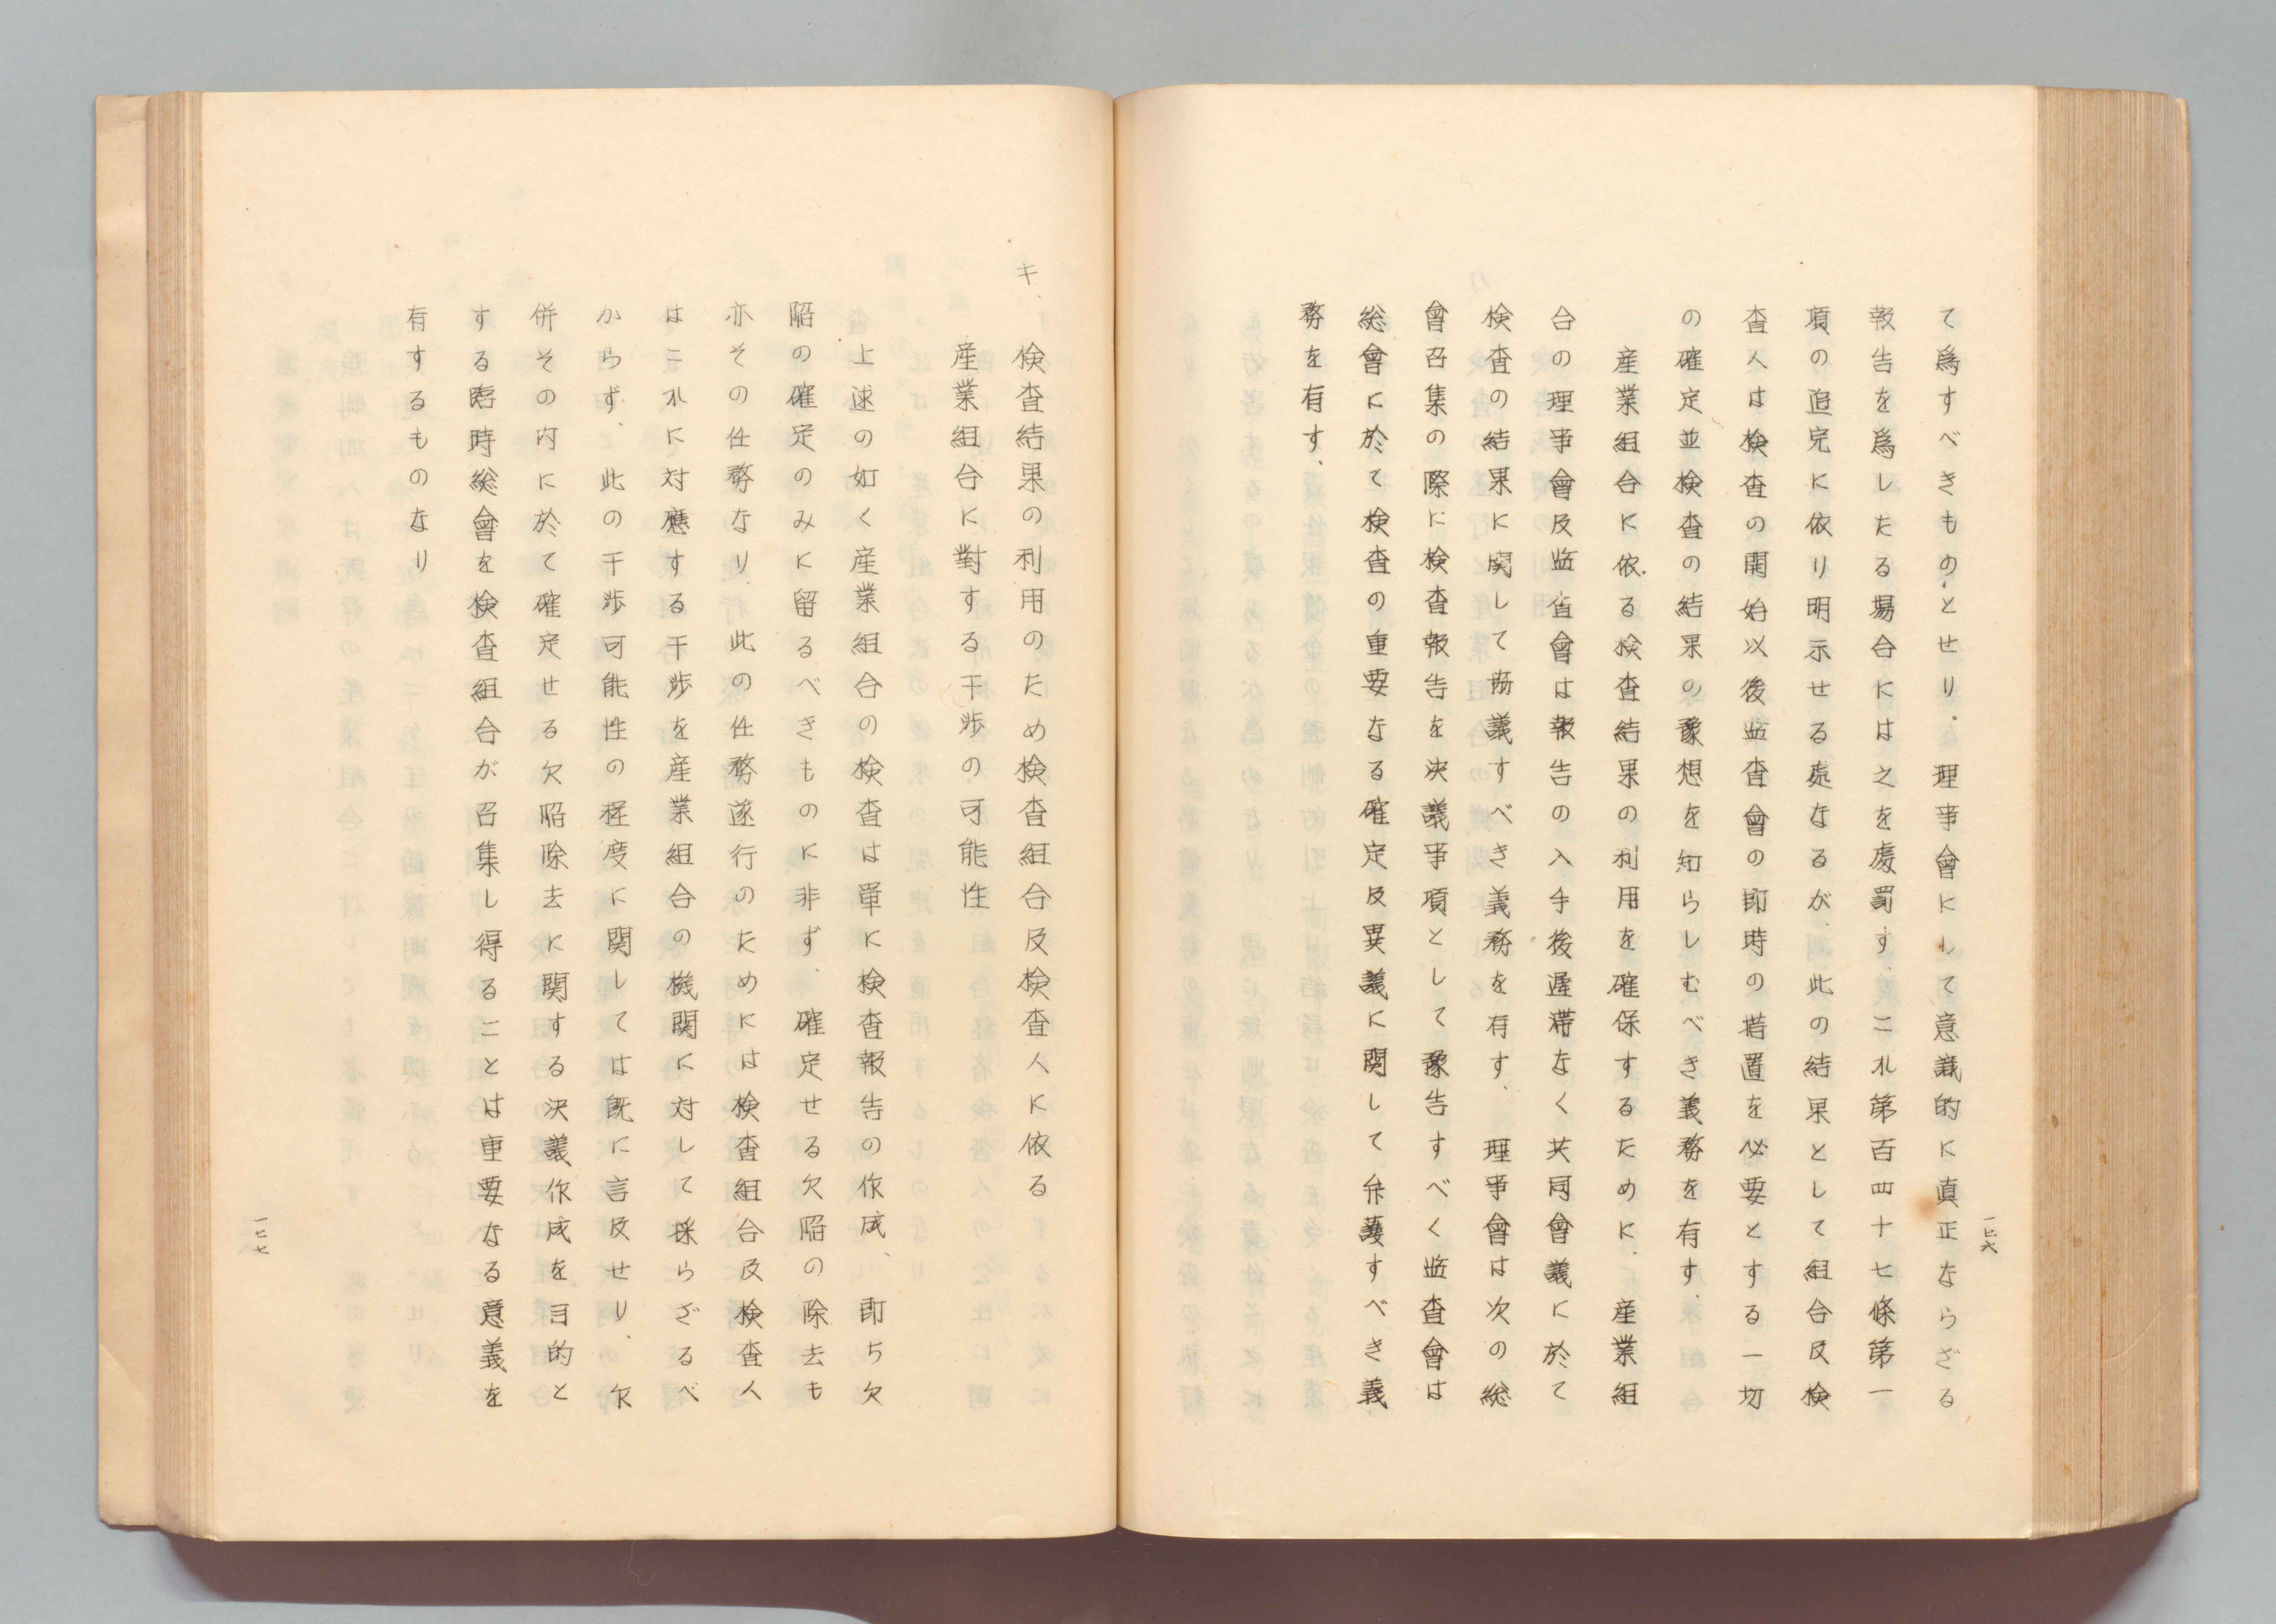 一七六
て爲すべきものとせり、理事會にして意識的に真正ならざる
報告を爲したる場合には之を處罰す、これ第百四十七條第一
項の追完に依り明示せる處なるが、此の結果として組合及検
査人は検査の開始以後監査會の即時の措置を必要とする一切
の確定並検査の結果の豫想を知らしむべき義務を有す、
産業組合に依る検査結果の利用を確保するために、産業組
合の理事會及監査會は報告の入手後遅滞なく共同會議に於て
検査の結果に関して協議すべき義務を有す、理事會は次の総
會召集の際に検査報告を決議事項として豫告すべく監査會は
総會に於て検査の重要なる確定及異議に関して弁護すべき義
務を有す、
キ、検査結果の利用のため検査組合及検査人に依る
産業組合に對する干渉の可能性
上述の如く産業組合の検査は単に検査報告の作成、即ち欠
陥の確定のみに留るべきものに非ず、確定せる欠陥の除去も
亦その任務なり、此の任務遂行のためには検査組合及検査人
はこれに対應する干渉を産業組合の機関に対して採らざるべ
からず、此の干渉可能性の程度に関しては既に言及せり、欠
併その内に於て確定せる欠陥除去に関する決議作成を目的と
する臨時総會を検査組合が召集し得ることは重要なる意義を
有するものなり
一七七